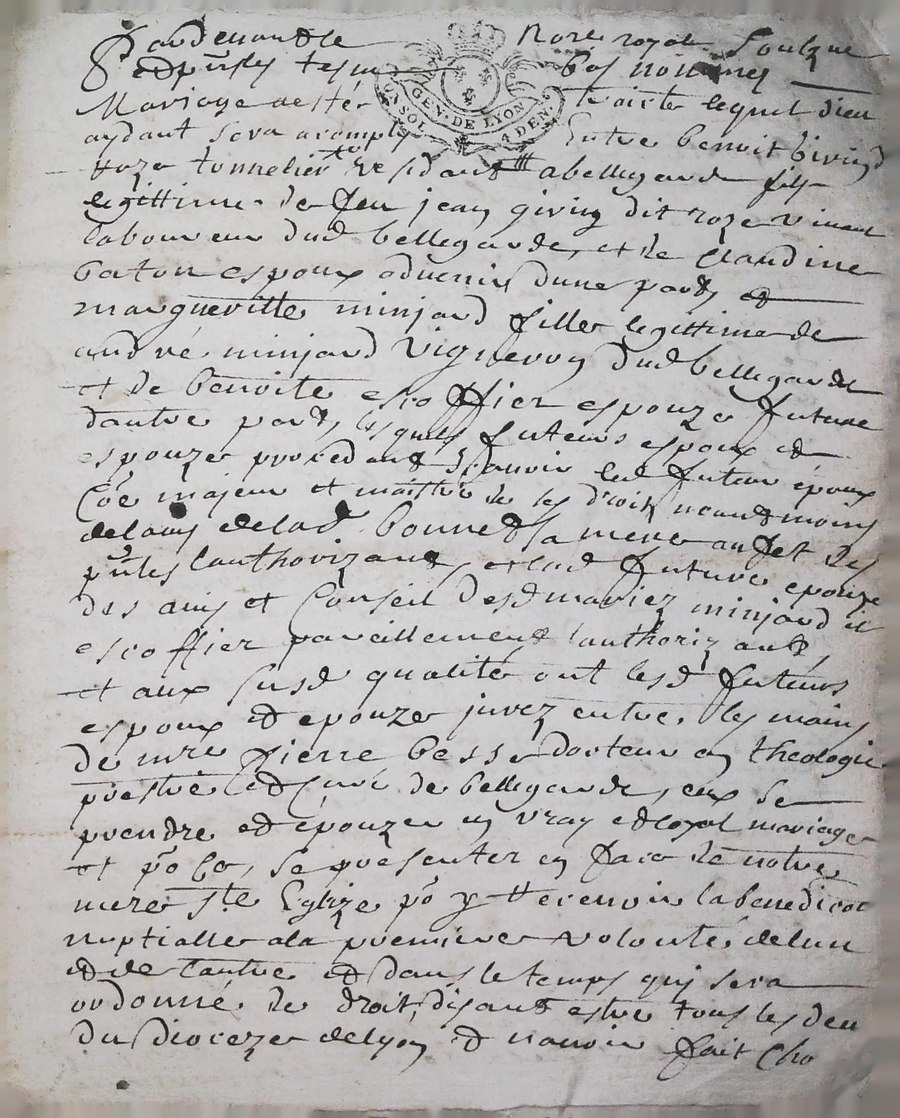 Pardevant le Nore royal Soubzne
et pnts tesm bas nommes
Mariage a esté traicté lequel dieu
aydant sera acomply Entre benoit Giring
GEN. DE LYON
4 DEN.
Roze tonnelier residant a bellegarde fils
legittime de feu jean giring dit roze vivant
laboureur dud bellegarde, et de Claudine
baton espoux advenir dune part, et
margueritte minjard fille legittime de
andré minjard Vigneron dud bellegarde
et de benoite escoffier espouze future
dautre part, lesquels futurs espoux et
espouze procedant Scavoir led futur époux
Coe majeur et maittre de ses droits neantmoins
de lavis de lad bonne sa mere au fet des
pntes lauthorizant, et lad future épouze
des avis et Conseil desd mariez minjard et
escoffier pareillement lauthorizant,
et aux Susd qualité ont lesd futurs
espoux et epouze jurez entre les mains
de mre pierre besse docteur en theologie
prestre et Curé de bellegarde, eux se
prendre et épouzer en vray et loyal mariage
et po ce, se presenter en face de notre
mere ste Eglize po y recevoir la benediction
nuptialle a la premiere volonté de lun
et de lautre et dans le temps qui sera
ordonné de droit, disant estre tous les deu
du dioceze de lyon et navoir fait Cho